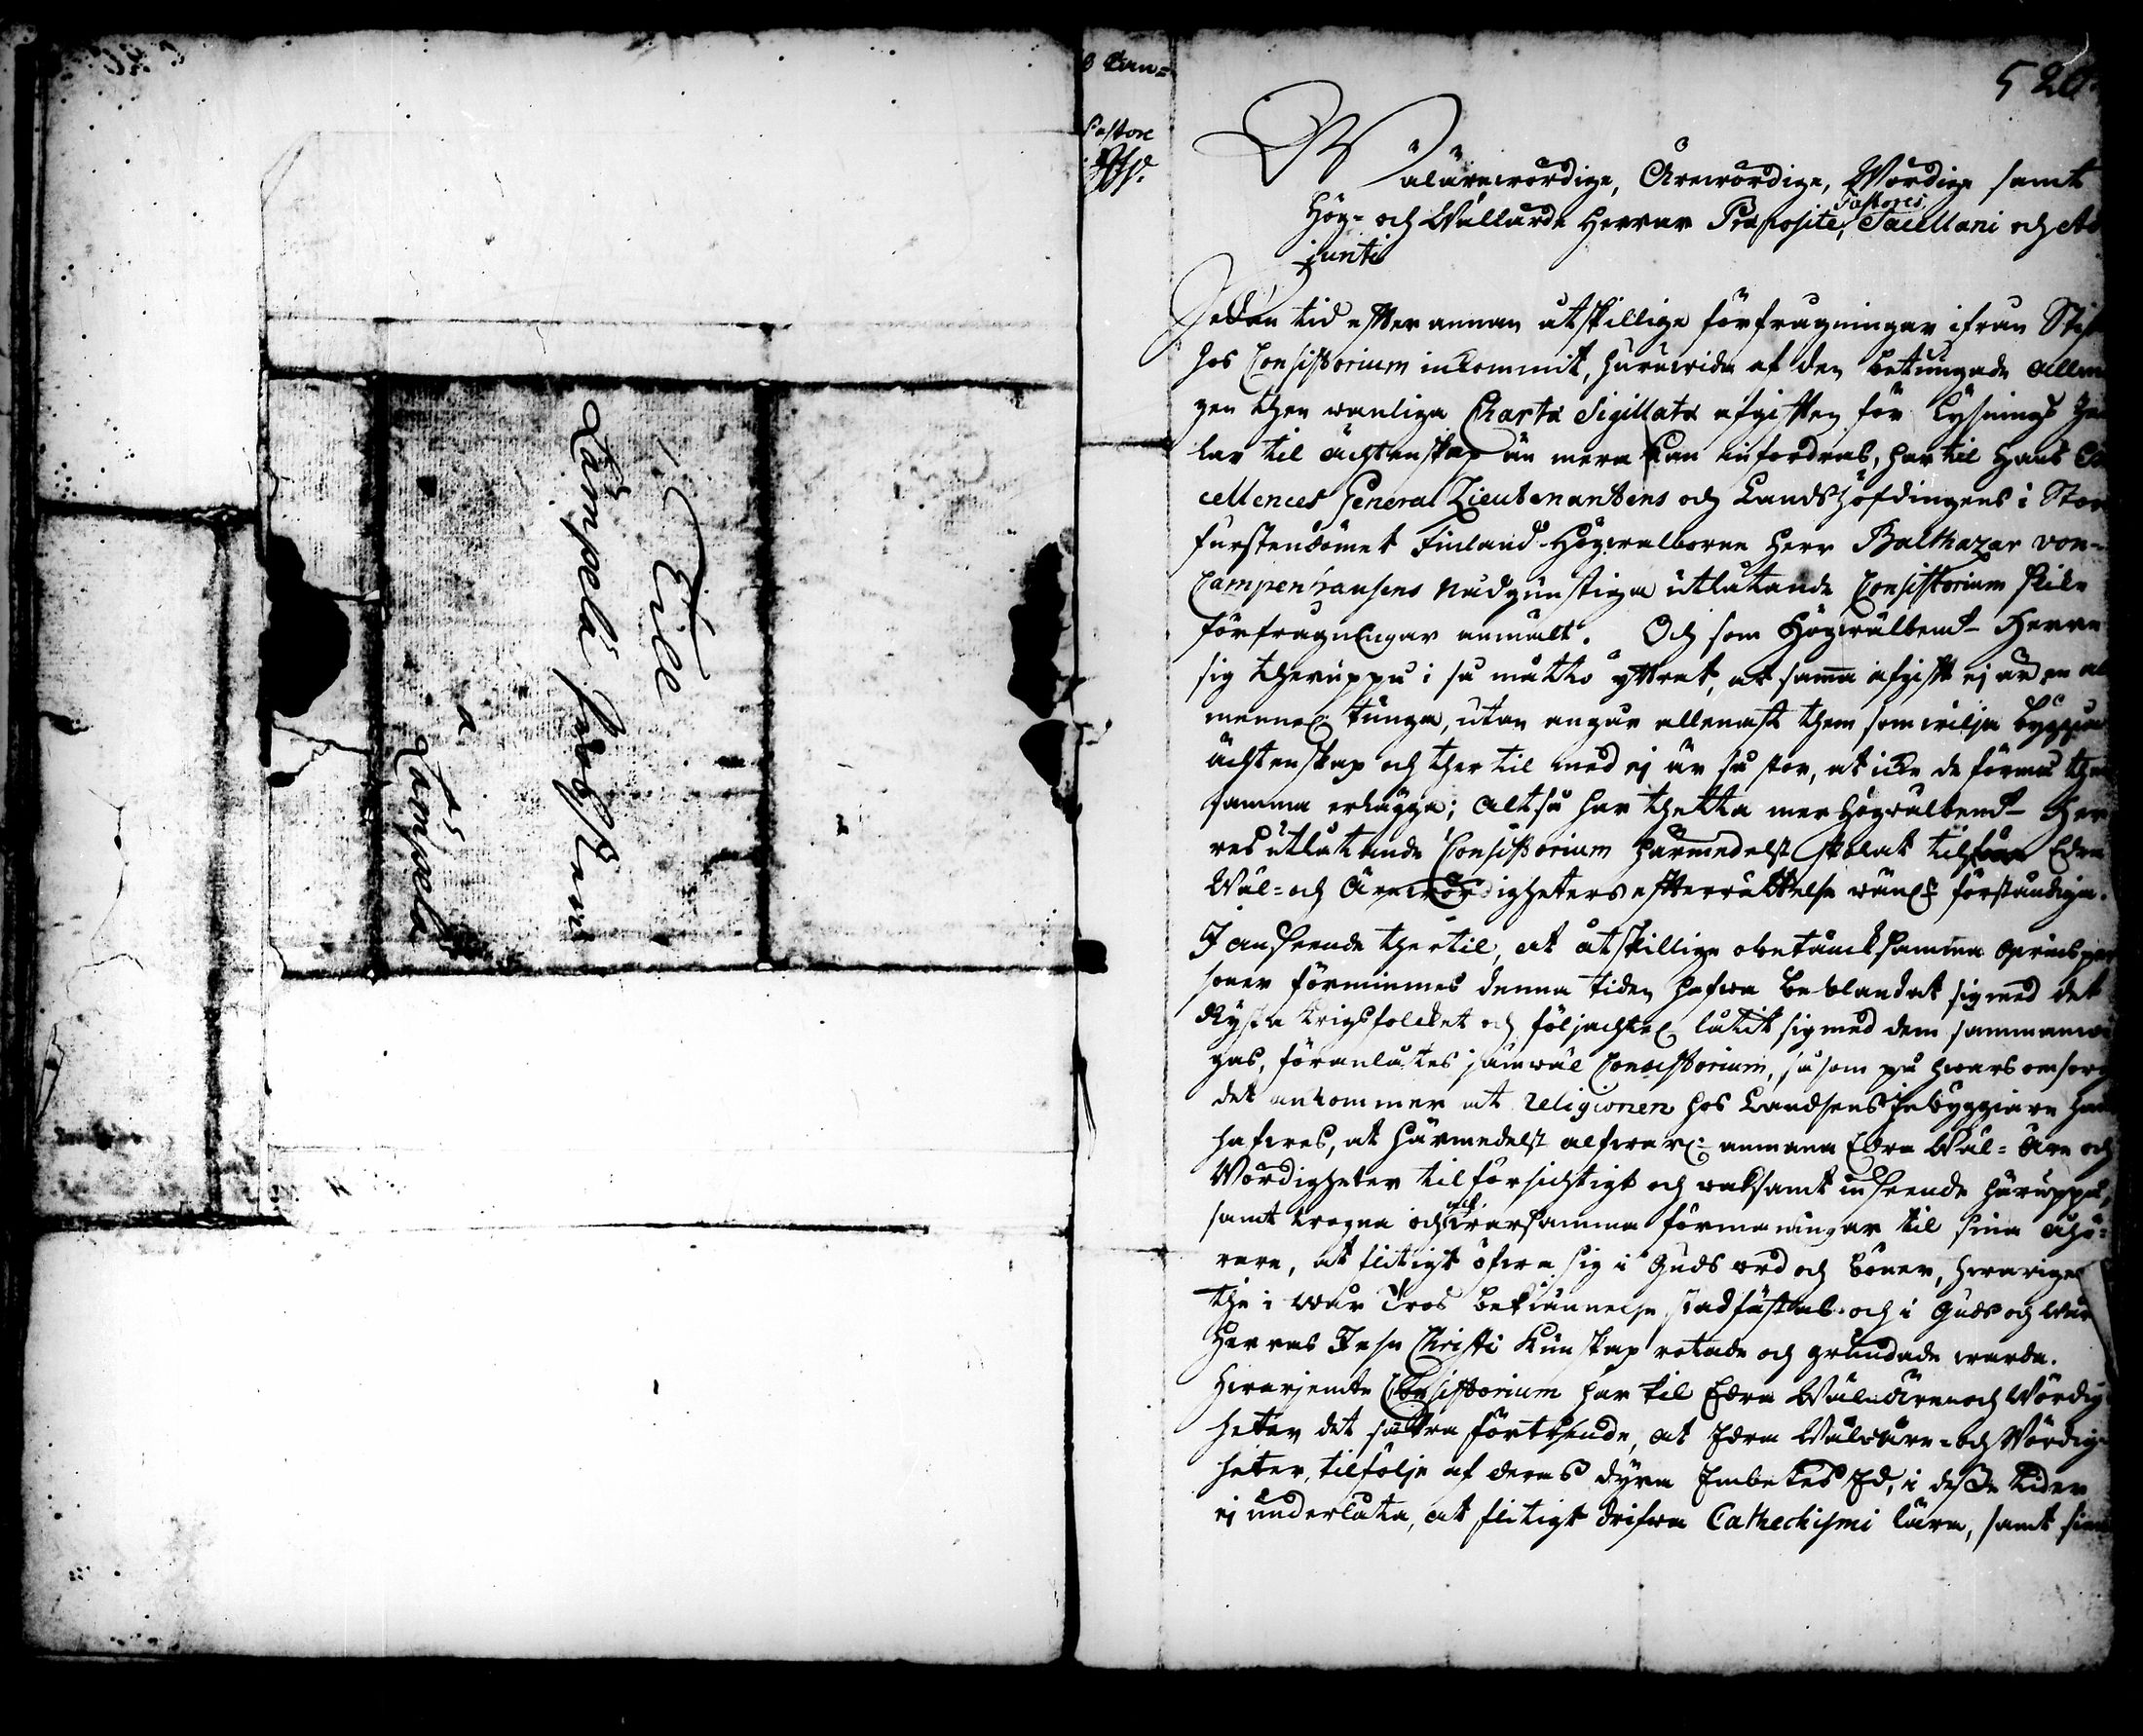 Till
Lampela Prästen
a
Lampela
ö Can=
Pastore
520
Wälärewördige, Ärewördige, Wördige samt
Hög- och Wällärde Herrar Præposite, Pastores, Sacellani och Ad
juncti
Sedan tid efter annan åtskillige förfrågningar ifrån Stif
hos Consistorium inkommit, huruwida af den betungade allmo
gen then wanliga Charta Sigillata afgiften för Lysnings Zed
lar til ächtenskap än mera kan infordras, har til Hans Ex
cellences General Lieutenantens och Landshöfdingens i Stor
furstendömet Finland Högwälborne Herr Balthazar von
Campenhausens nådgunstiga utlåtande Consistorium slike
förfrågningar anmält. Och som Högwälbem:te Herre
sig theruppå i så måtto yttrat, at samma afgift ej är en al
männel: tunga, utan angår allenast them som wilja bygga
ächtenskap och ther til med ej är så stor, at icke de förmå then
samma erlägga; Altså har thetta mer högwälbem:te Her
res utlåtande Consistorium härmedelst skolat til Edra
Wäl- och Ärewördigheters efterrättelse wänl: förständiga.
I anseende ther til, at åtskillige obetäncksamma qwinsper
soner förnimmes denna tiden hafwa beblandat sig med det
Ryska krigsfolcket och följachtel: låtit sig med dem sammanwi
gas, föranlåtes jämwäl Consistorium, såsom på hwars omsorg
det ankommer at religionen hos Landsens Inbyggiare hand
hafwes, at härmedelst alfwarl: anmana Edra Wäl- Äre och
Wördigheter til försichtigt och waksamt inseende häruppå,
samt trogna och alfwarsamma förmaningar til sina åhö=
rare, at flitigt öfwa sig i Guds ord och böner, hwarigenom
the i wår Tros bekiännelse stadfästas och i Guds och wår
Herras Jesu Christi kunskap rotade och grundade warda.
Hwarjemte Consistorium har til Edra Wäl- Äre- och Wördig
heter det säkra förtroende, at Edra Wäl- Äre- och Wördig-
heter, til följe af deras dyra Embetes Ed, i desse tider
ej underlåta, at flitigt drifwa Cathechismi lära, samt sina